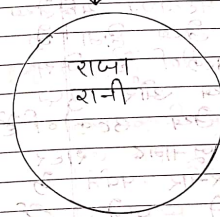 राजा
रानी